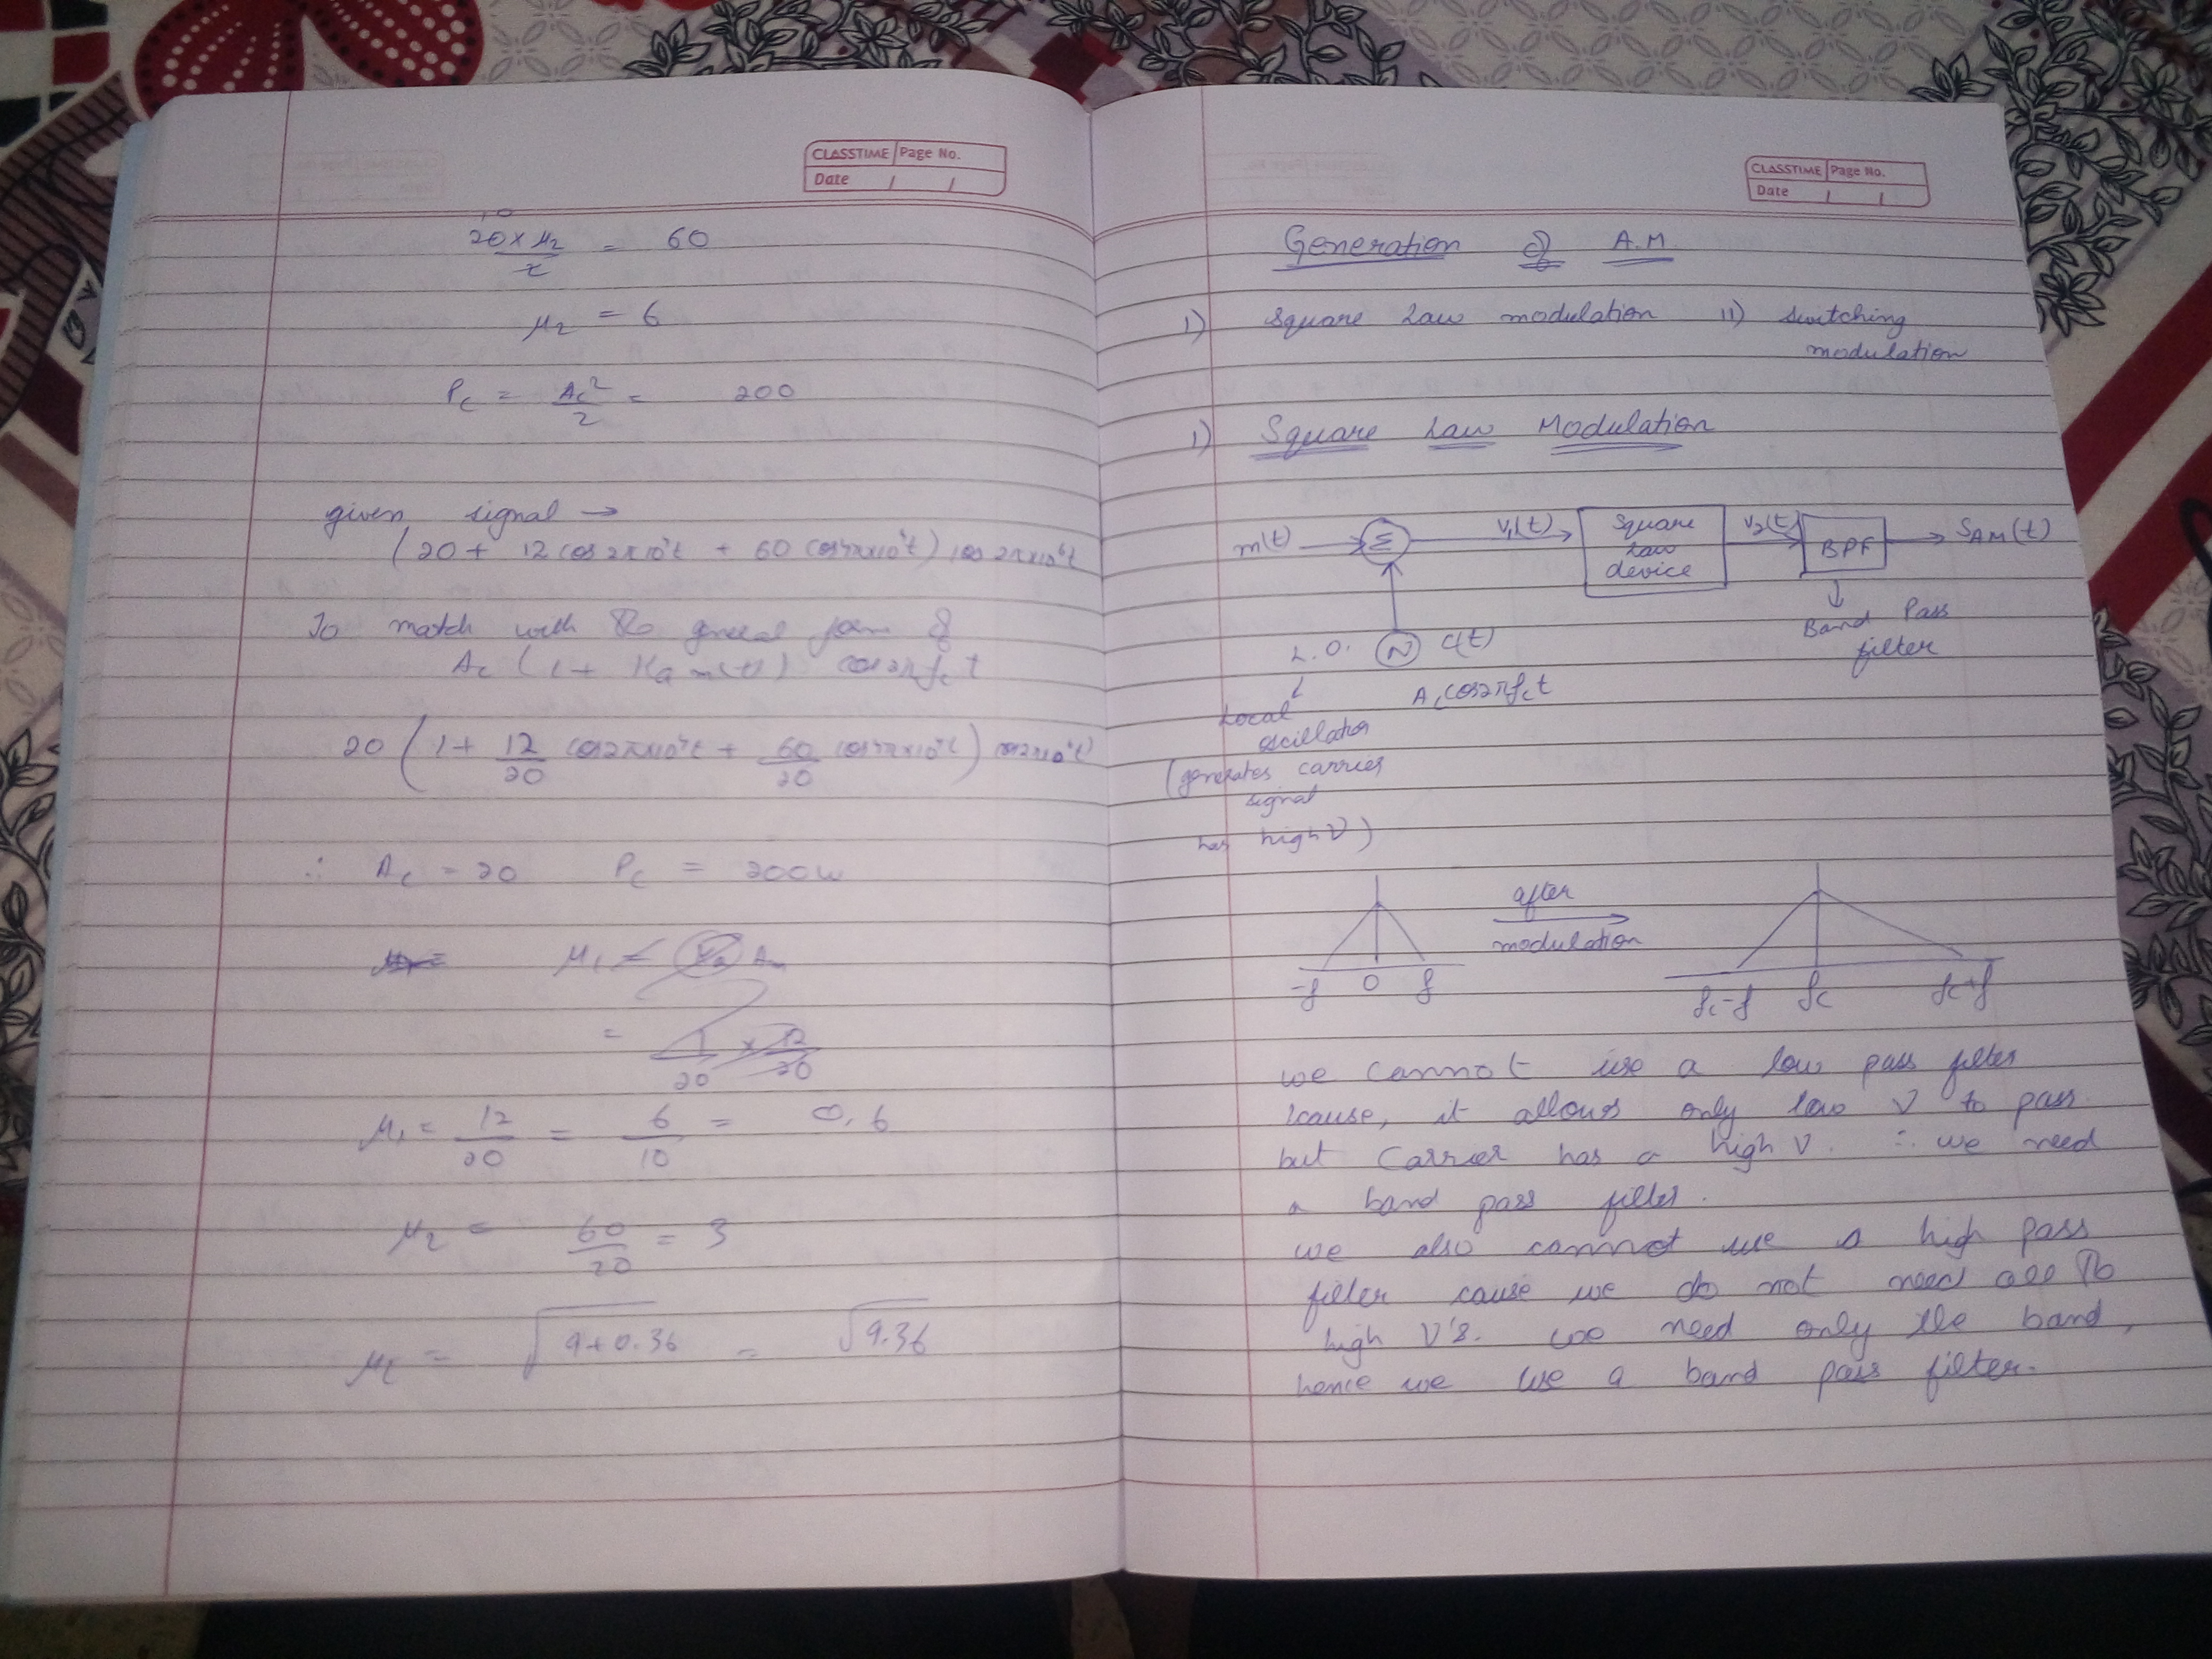 CLASSTIME Page No.
Date / /
10
20 × μ2 = 60
2
μ2 = 6
Pc = Ac² = 200
2
given signal →
(20 + 12 cos 2π10⁴t + 60 cos 4π×10⁴t) cos 2π×10⁶t
To match with the general form of
Ac (1 + Ka m(t)) cos 2πfc t
20 (1 + 12/20 cos2π×10⁴t + 60/20 cos4π×10⁴t) cos2π×10⁶t
∴ Ac = 20 Pc = 200w
μ1 = Ka Am
= 1/20 × 12/20
μ1 = 12/20 = 6/10 = 0.6
μ2 = 60/20 = 3
μt = √9+0.36 = √9.36
CLASSTIME Page No.
Date / /
Generation of A.M.
1) Square Law modulation 11) switching
modulation
1) Square Law Modulation
m(t) Σ V1(t) Square Law device V2(t) BPF SAM(t)
Band Pass
filter
L.O. N C(t)
Ac cos2πfct
Local
oscillator
(generates carrier
signal
has high ν)
after
modulation
-f 0 f fc-f fc fc+f
we cannot use a low pass filter
'cause, it allows only low ν to pass
but Carrier has a high ν. ∴ we need
a band pass filter.
we also cannot use a high pass
filter cause we do not need all the
high ν's. we need only the band,
hence we use a band pass filter.